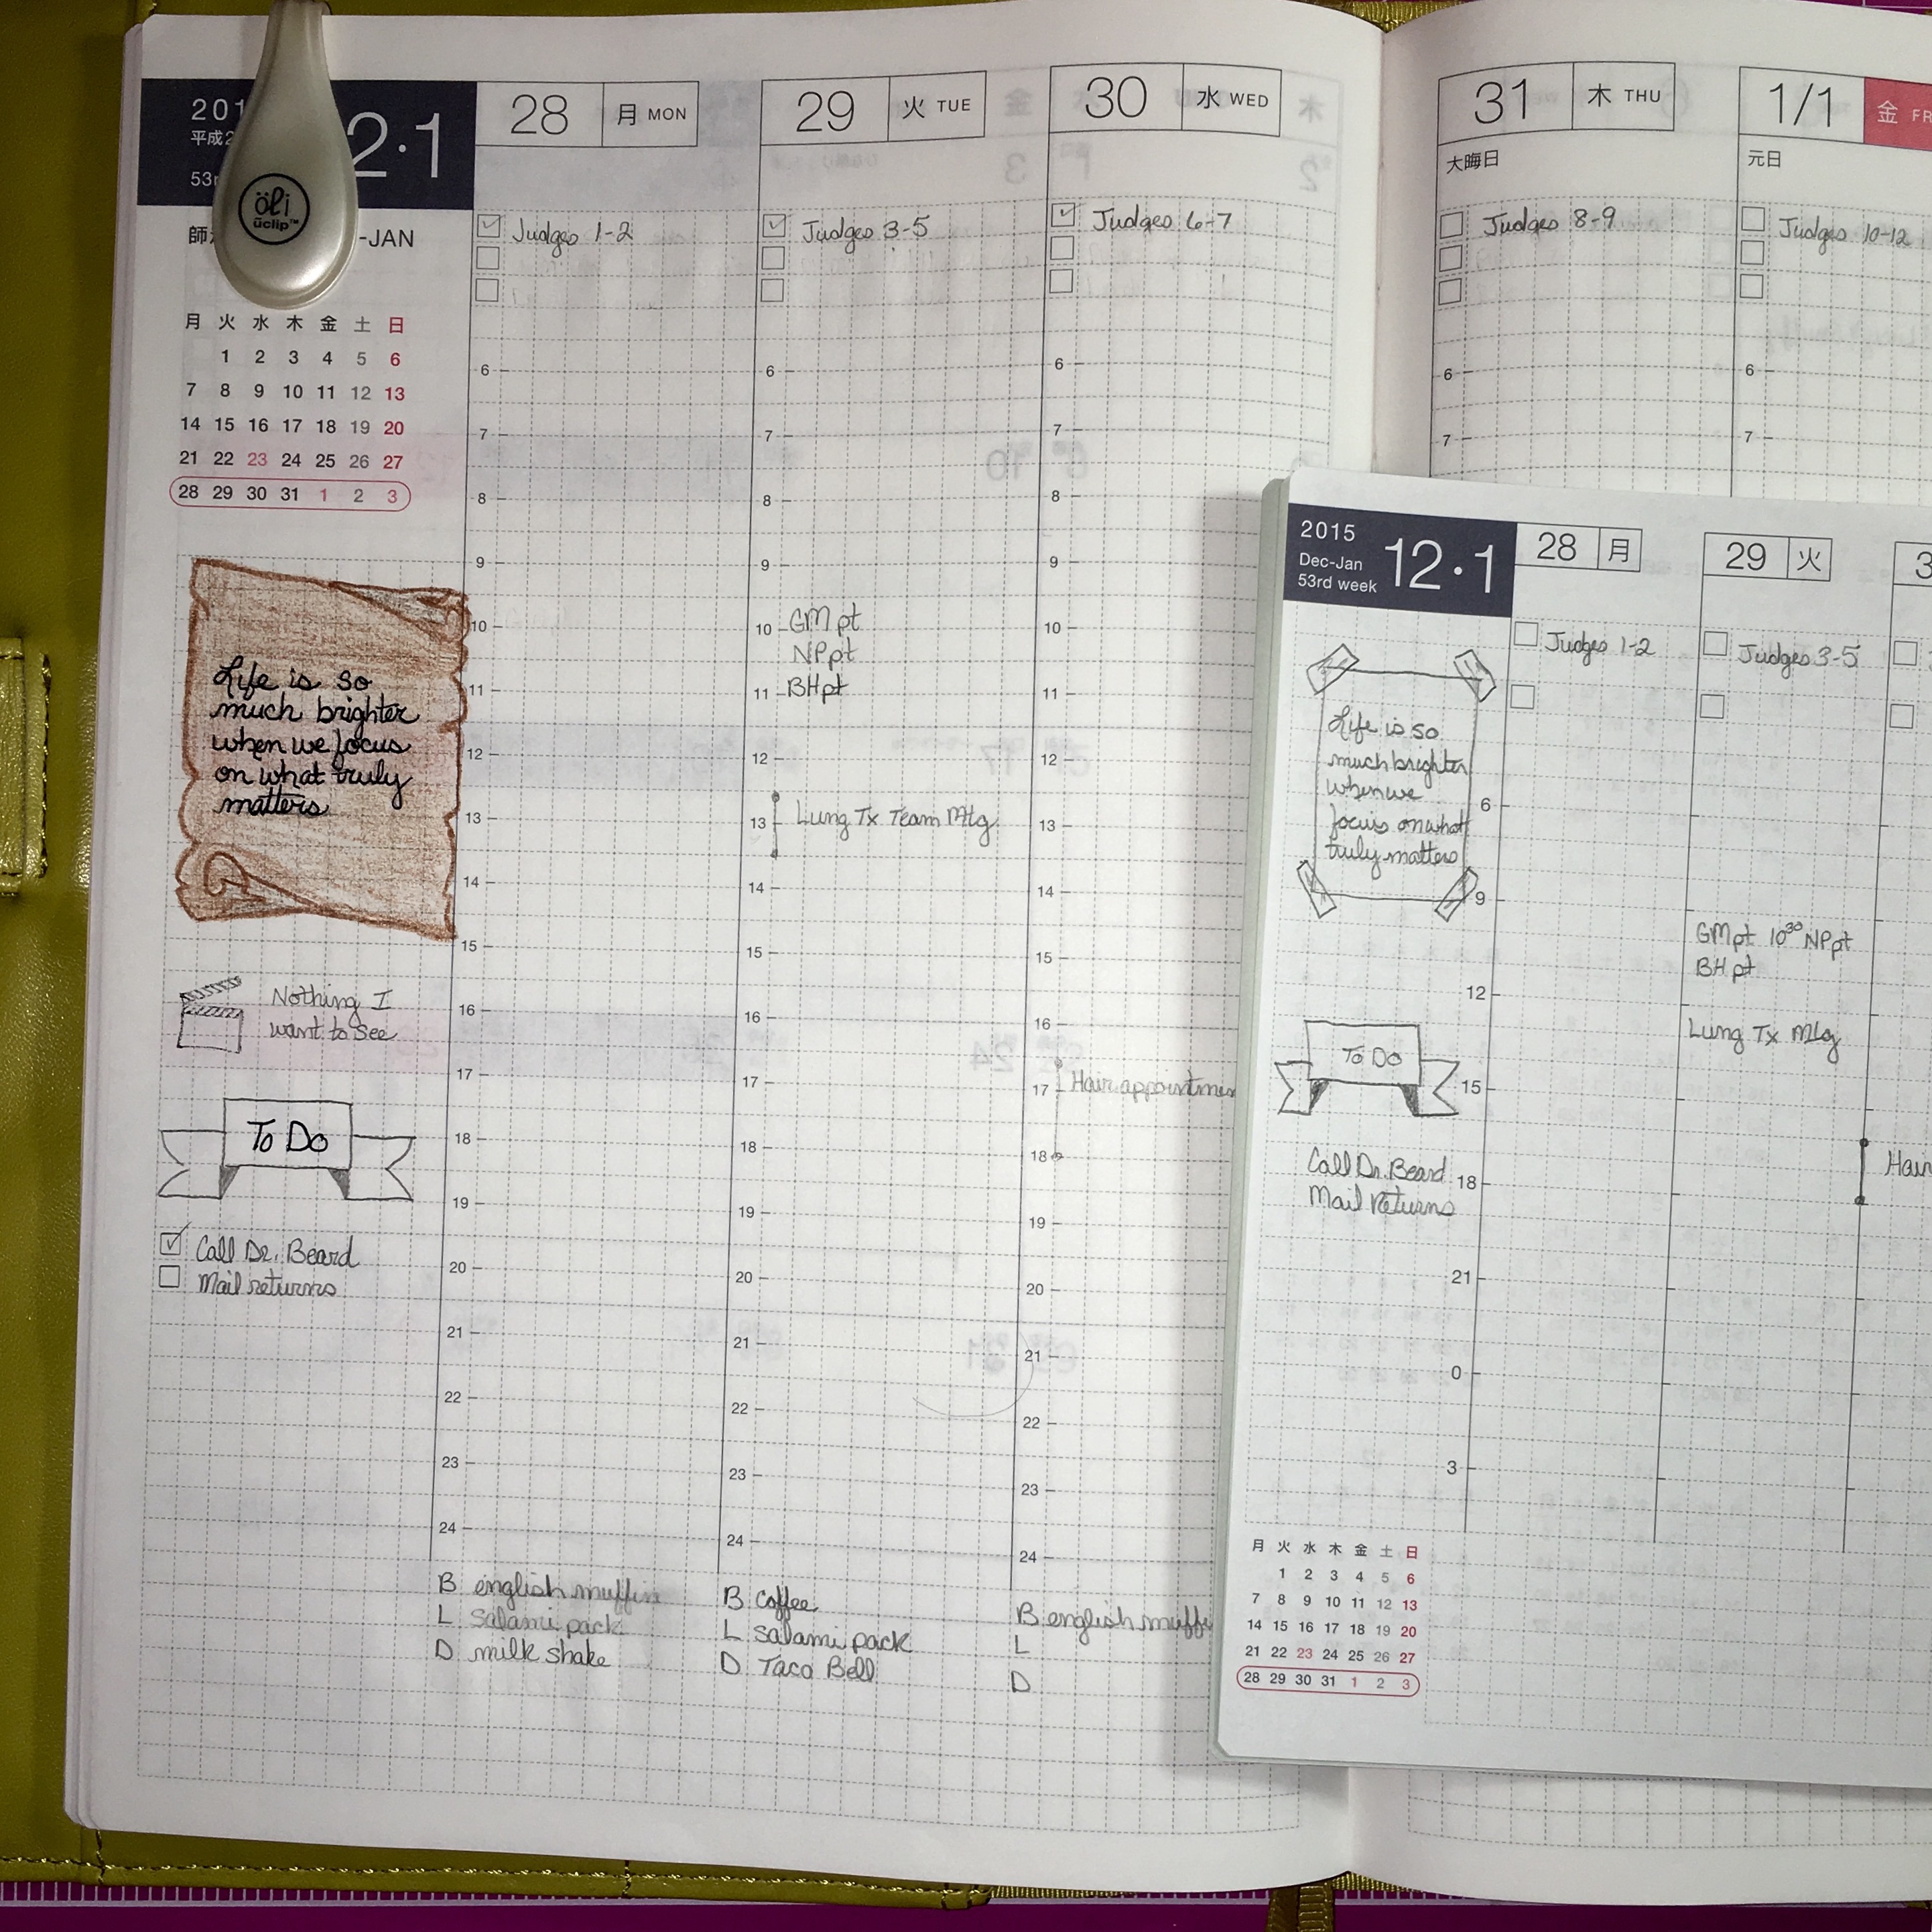 201
平成2
53r
2·1
öli
üclip™
-JAN
月 火 水 木 金 土 日
1 2 3 4 5 6
7 8 9 10 11 12 13
14 15 16 17 18 19 20
21 22 23 24 25 26 27
28 29 30 31 1 2 3
Life is so
much brighter
when we focus
on what truly
matters
Nothing I
want to see
To Do
Call Dr. Beard
Mail returns
28 月 MON
Judges 1-2
6
7
8
9
10
11
12
13
14
15
16
17
18
19
20
21
22
23
24
B english muffin
L Salami pack
D milk shake
29 火 TUE
Judges 3-5
6
7
8
9
10 GM pt
NP pt
11 BH pt
12
13 Lung Tx Team Mtg
14
15
16
17
18
19
20
21
22
23
24
B Coffee
L salami pack
D Taco Bell
30 水 WED
Judges 6-7
6
7
8
9
10
11
12
13
14
15
16
17 Hair appointmen
18
19
20
21
22
23
24
B english muffi
L
D
31 木 THU
大晦日
Judges 8-9
6
7
1/1 金 FR
元日
Judges 10-12
6
7
2015
Dec-Jan
53rd week
12·1
Life is so
much brighter
when we
focus on what
truly matters
To Do
Call Dr. Beard
Mail Returns
月 火 水 木 金 土 日
1 2 3 4 5 6
7 8 9 10 11 12 13
14 15 16 17 18 19 20
21 22 23 24 25 26 27
28 29 30 31 1 2 3
28 月
Judges 1-2
6
9
12
15
18
21
0
3
29 火
Judges 3-5
GM pt 10³⁰ NP pt
BH pt
Lung Tx Mtg
3
Hair